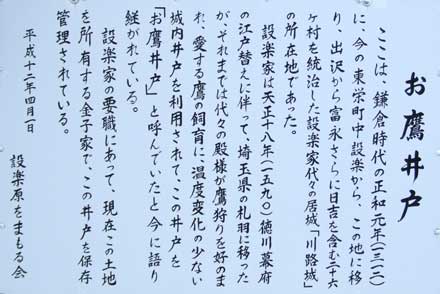 お鷹井戸
ここは、鎌倉時代の正和元年(一三一二)
に、今の東栄町中設楽から、この地に移
り、出沢から富永さらに日吉を含む二十六
ヶ村を統治した設楽家代々の居城「川路城」
の所在地であった。
設楽家は天正十八年(一五九〇)徳川幕府
の江戸替えに伴って、埼玉県の札羽に移った
が、それまでは代々の殿様が鷹狩りを好のま
れ、愛する鷹の飼育に、温度変化の少ない
城内井戸を利用されて、この井戸を
「お鷹井戸」と呼んでいたと今に語り
継がれている。
設楽家の要職にあって、現在この土地
を所有する金子家で、この井戸を保存
管理されている。
平成十二年四月一日
設楽原をまもる会